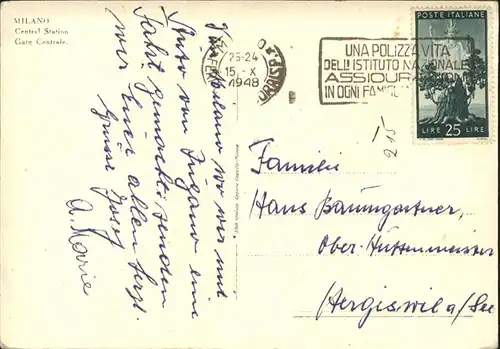 MILANO
Central Station
Gare Centrale.
Von Milano wo wir mit
Auto von Lugano eine
Fahrt gemacht, senden
wir Euch allen herzl.
Grüsse Josef
u. Marie
25-24
15. X
1948
UNA POLIZZA VITA
DELL'ISTITUTO NAZIONALE
ASSICURAZIONI
IN OGNI FAMIGLIA
POSTE ITALIANE
LIRE 25 LIRE
Familie
Hans Baumgartner,
Ober-Hüttenmeister
Hergiswil a/See